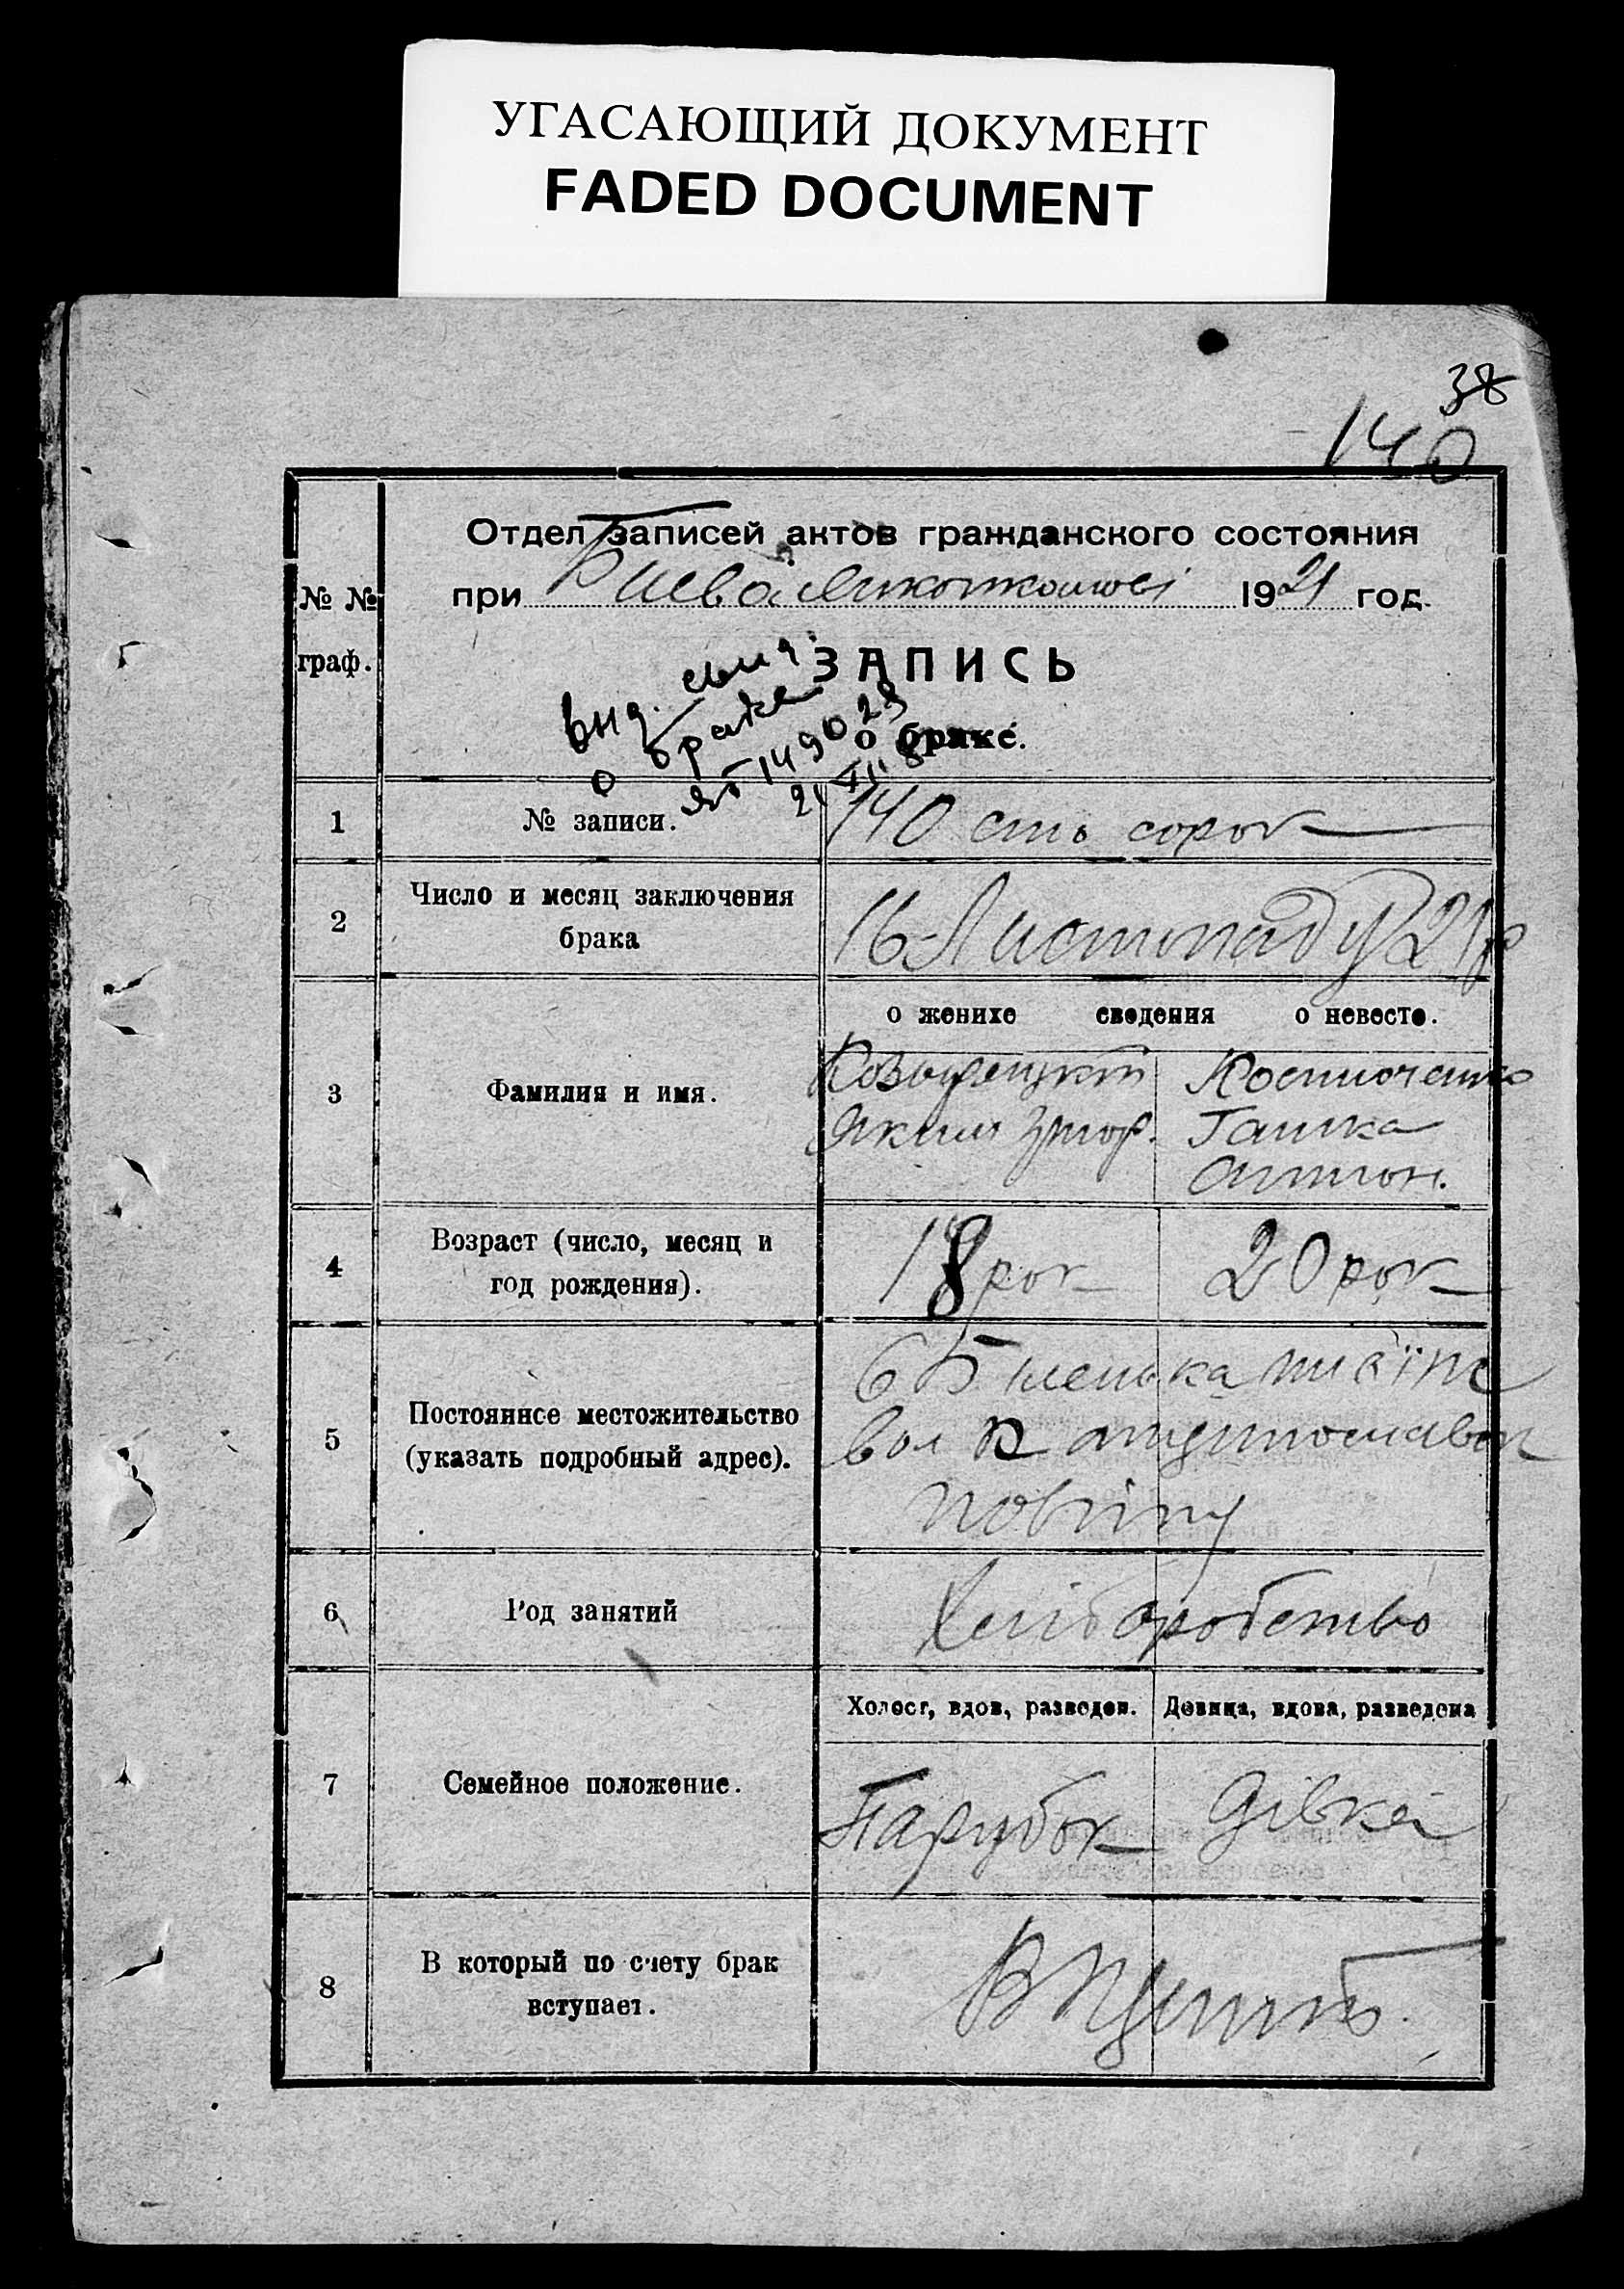 УГАСАЮЩИЙ ДОКУМЕНТ
FADED DOCUMENT
38
140
№ № граф.
Отдел записей актов гражданского состояния
при 1921 год.
ЗАПИСЬ
о браке.
выд. свид.
о браке
1 № записи. 140 сто сорок
2 Число и месяц заключения
брака
16 Листопаду 21 р
о женихе сведения о невесте.
3 Фамилия и имя.
Яким Григ.
Костюченко
Ганка
Антон.
4 Возраст (число, месяц и
год рождения).
18 рок 20 рок
5 Постоянное местожительство
(указать подробный адрес).
вол
повіту
6 Род занятий
Хліборобство
Холост, вдов, разведен. Девица, вдова, разведена
7 Семейное положение.
Парубок Дівка
8 В который по счету брак
вступает.